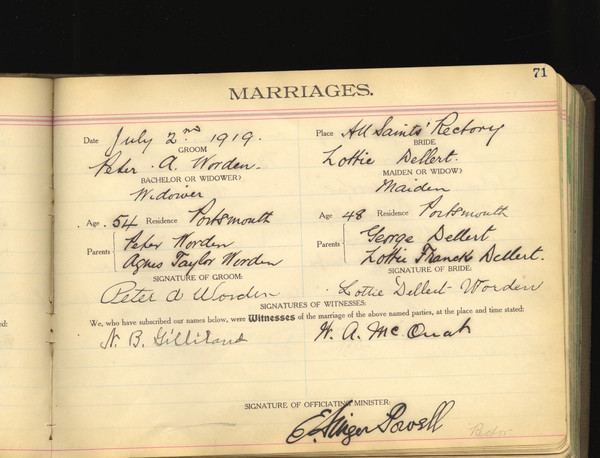 71
MARRIAGES.
Date July 2nd 1919.
Place All Saints' Rectory
GROOM
BRIDE
Peter A. Worden
Lottie Dellert.
BACHELOR OR WIDOWER?
MAIDEN OR WIDOW?
Widower
Maiden
Age 54 Residence Portsmouth
Age 48 Residence Portsmouth
Parents { Peter Worden
Agnes Taylor Worden
Parents { George Dellert
Lottie Francke Dellert.
SIGNATURE OF GROOM:
SIGNATURE OF BRIDE:
Peter A Worden
Lottie Dellert-Worden
SIGNATURES OF WITNESSES:
We, who have subscribed our names below, were Witnesses of the marriage of the above named parties, at the place and time stated:
ted:
N. B. Gilliland
H. A. McOuat
SIGNATURE OF OFFICIATING MINISTER:
E. Ainger Powell
Rector